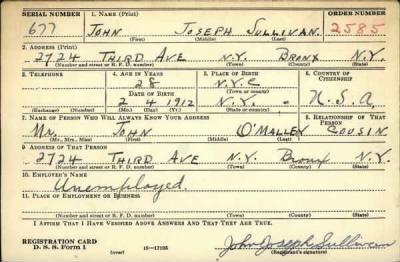 SERIAL NUMBER 1. NAME (Print) ORDER NUMBER
677 JOHN JOSEPH SULLIVAN. 2585
(First) (Middle) (Last)
2. ADDRESS (Print)
2724 THIRD AVE N.Y. BRONX N.Y.
(Number and street or R. F. D. number) (Town) (County) (State)
3. TELEPHONE 4. AGE IN YEARS 5. PLACE OF BIRTH 6. COUNTRY OF CITIZENSHIP
28 N.Y.C
DATE OF BIRTH (Town or county)
2 4 1912 N.Y. U.S.A.
(Exchange) (Number) (Mo.) (Day) (Yr.) (State or country)
7. NAME OF PERSON WHO WILL ALWAYS KNOW YOUR ADDRESS 8. RELATIONSHIP OF THAT PERSON
Mr. JOHN O'MALLEY COUSIN
(Mr., Mrs., Miss) (First) (Middle) (Last)
9. ADDRESS OF THAT PERSON
2724 THIRD AVE N.Y. Bronx N.Y.
(Number and street or R. F. D. number) (Town) (County) (State)
10. EMPLOYER'S NAME
Unemployed.
11. PLACE OF EMPLOYMENT OR BUSINESS
(Number and street or R. F. D. number) (Town) (County) (State)
I AFFIRM THAT I HAVE VERIFIED ABOVE ANSWERS AND THAT THEY ARE TRUE.
REGISTRATION CARD
D. S. S. Form 1 (over) 16—17105 John Joseph Sullivan
(Registrant's signature)